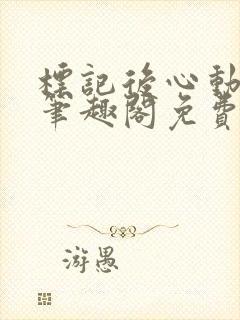 標記後心動
筆趣閣免費
游愚